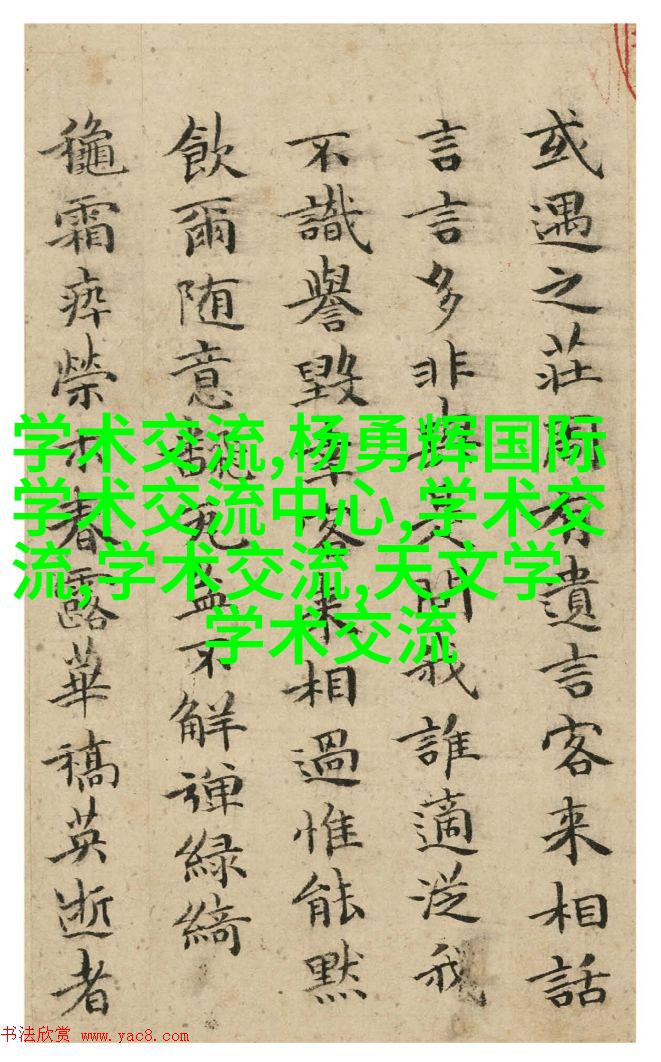 或遇之莊有遺言客来相話
言言多非是問我誰適従我
不識譽毀客来相過惟能默
飲爾随意不解弾緑綺
穐霜瘁榮春露華稿英逝者
学术交流,杨勇辉国际
学术交流中心,学术交
流,学术交流,天文学
学术交流
书法欣赏 www.yac8.com